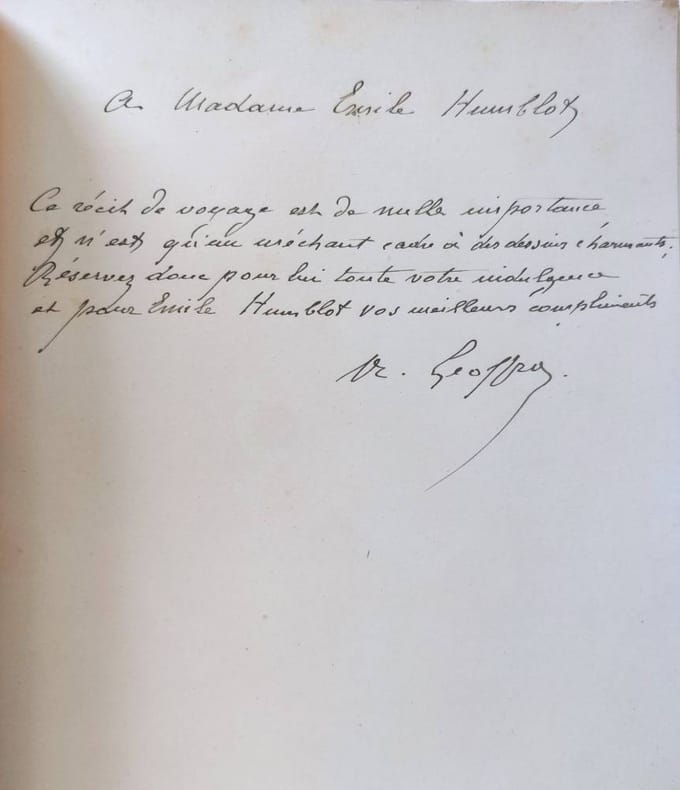 A Madame Emile Humblot
Ce récit de voyage est de nulle importance
et n'est qu'un méchant cadre à des dessins charmants.
Réservez donc pour lui toute votre indulgence
et pour Emile Humblot vos meilleurs compliments
Geoffroy.